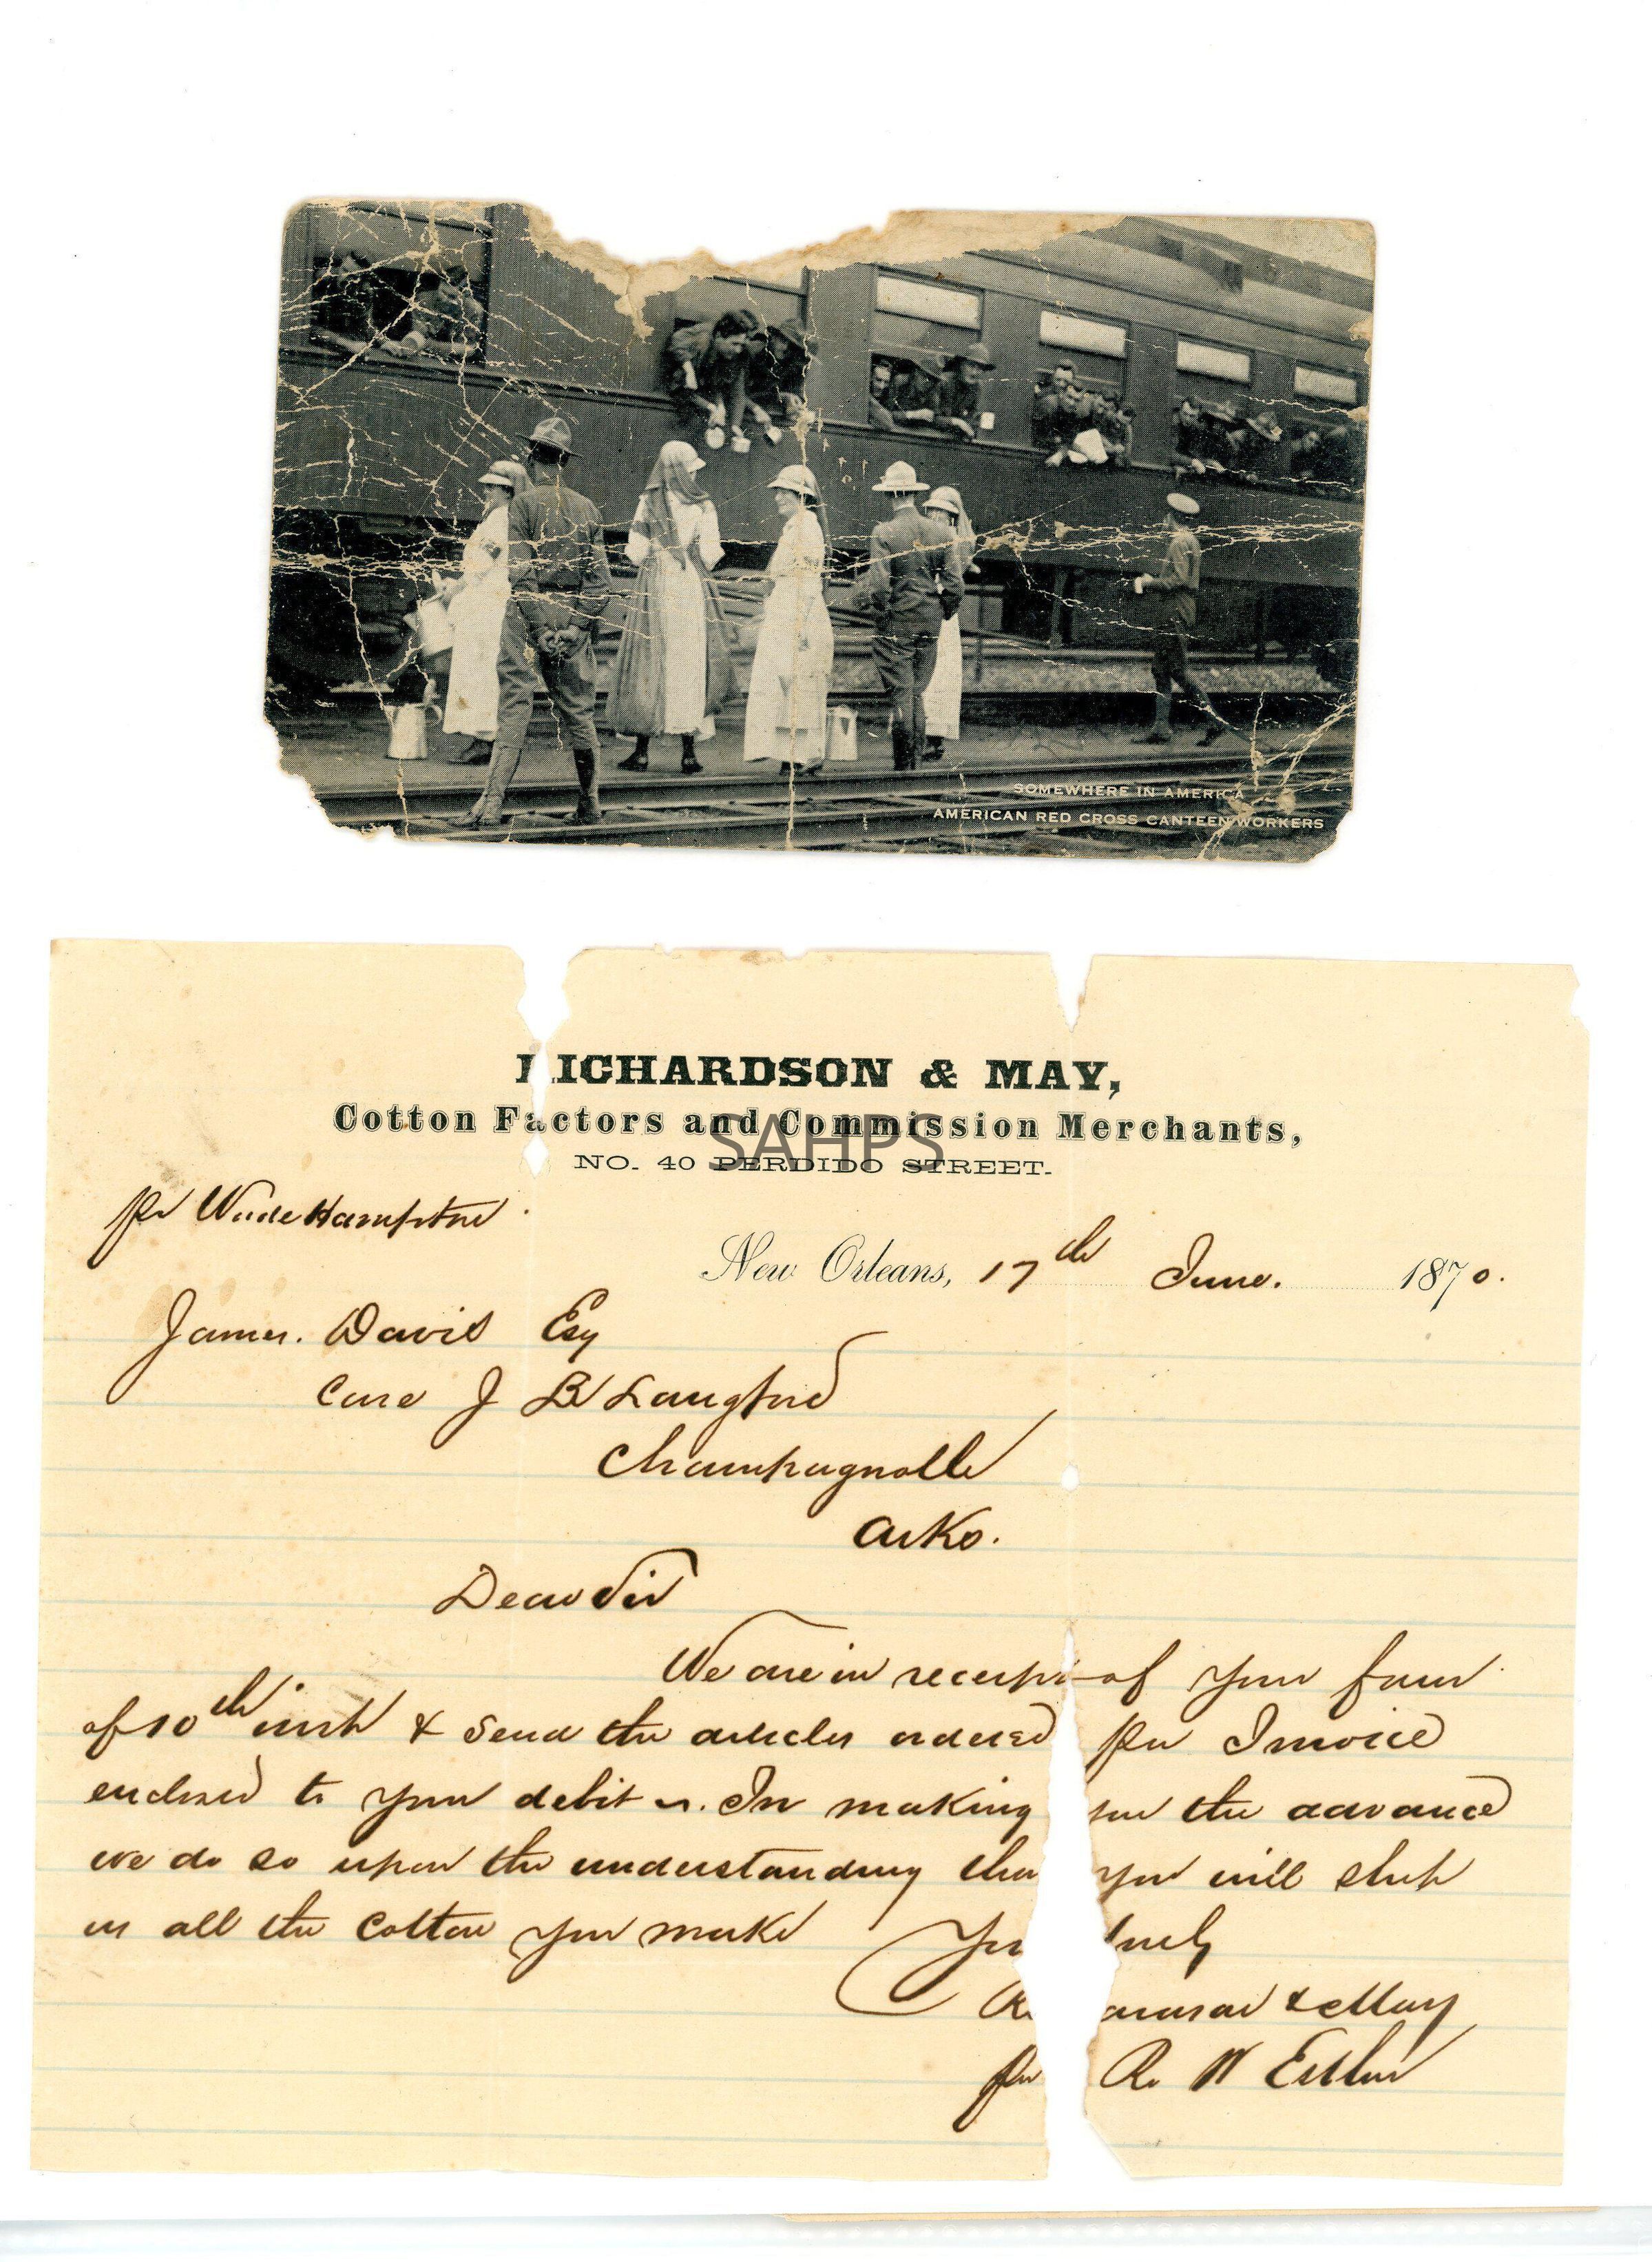 SOMEWHERE IN AMERICA
AMERICAN RED CROSS CANTEEN WORKERS
RICHARDSON & MAY,
Cotton Factors and Commission Merchants,
SAHPS
NO. 40 PERDIDO STREET.
Pr Wade Hampton.
New Orleans, 17th June. 1870.
James. Davis Esq
Care J B Langford
Champagnolle
Arks.
Dear Sir
We are in receipt of your favor
of 10th inst & send the articles ordered per Invoice
enclosed to your debit In making you the advance
we do so upon the understanding that you will ship
us all the Cotton you make
Yrs truly
Richardson & May
per R W